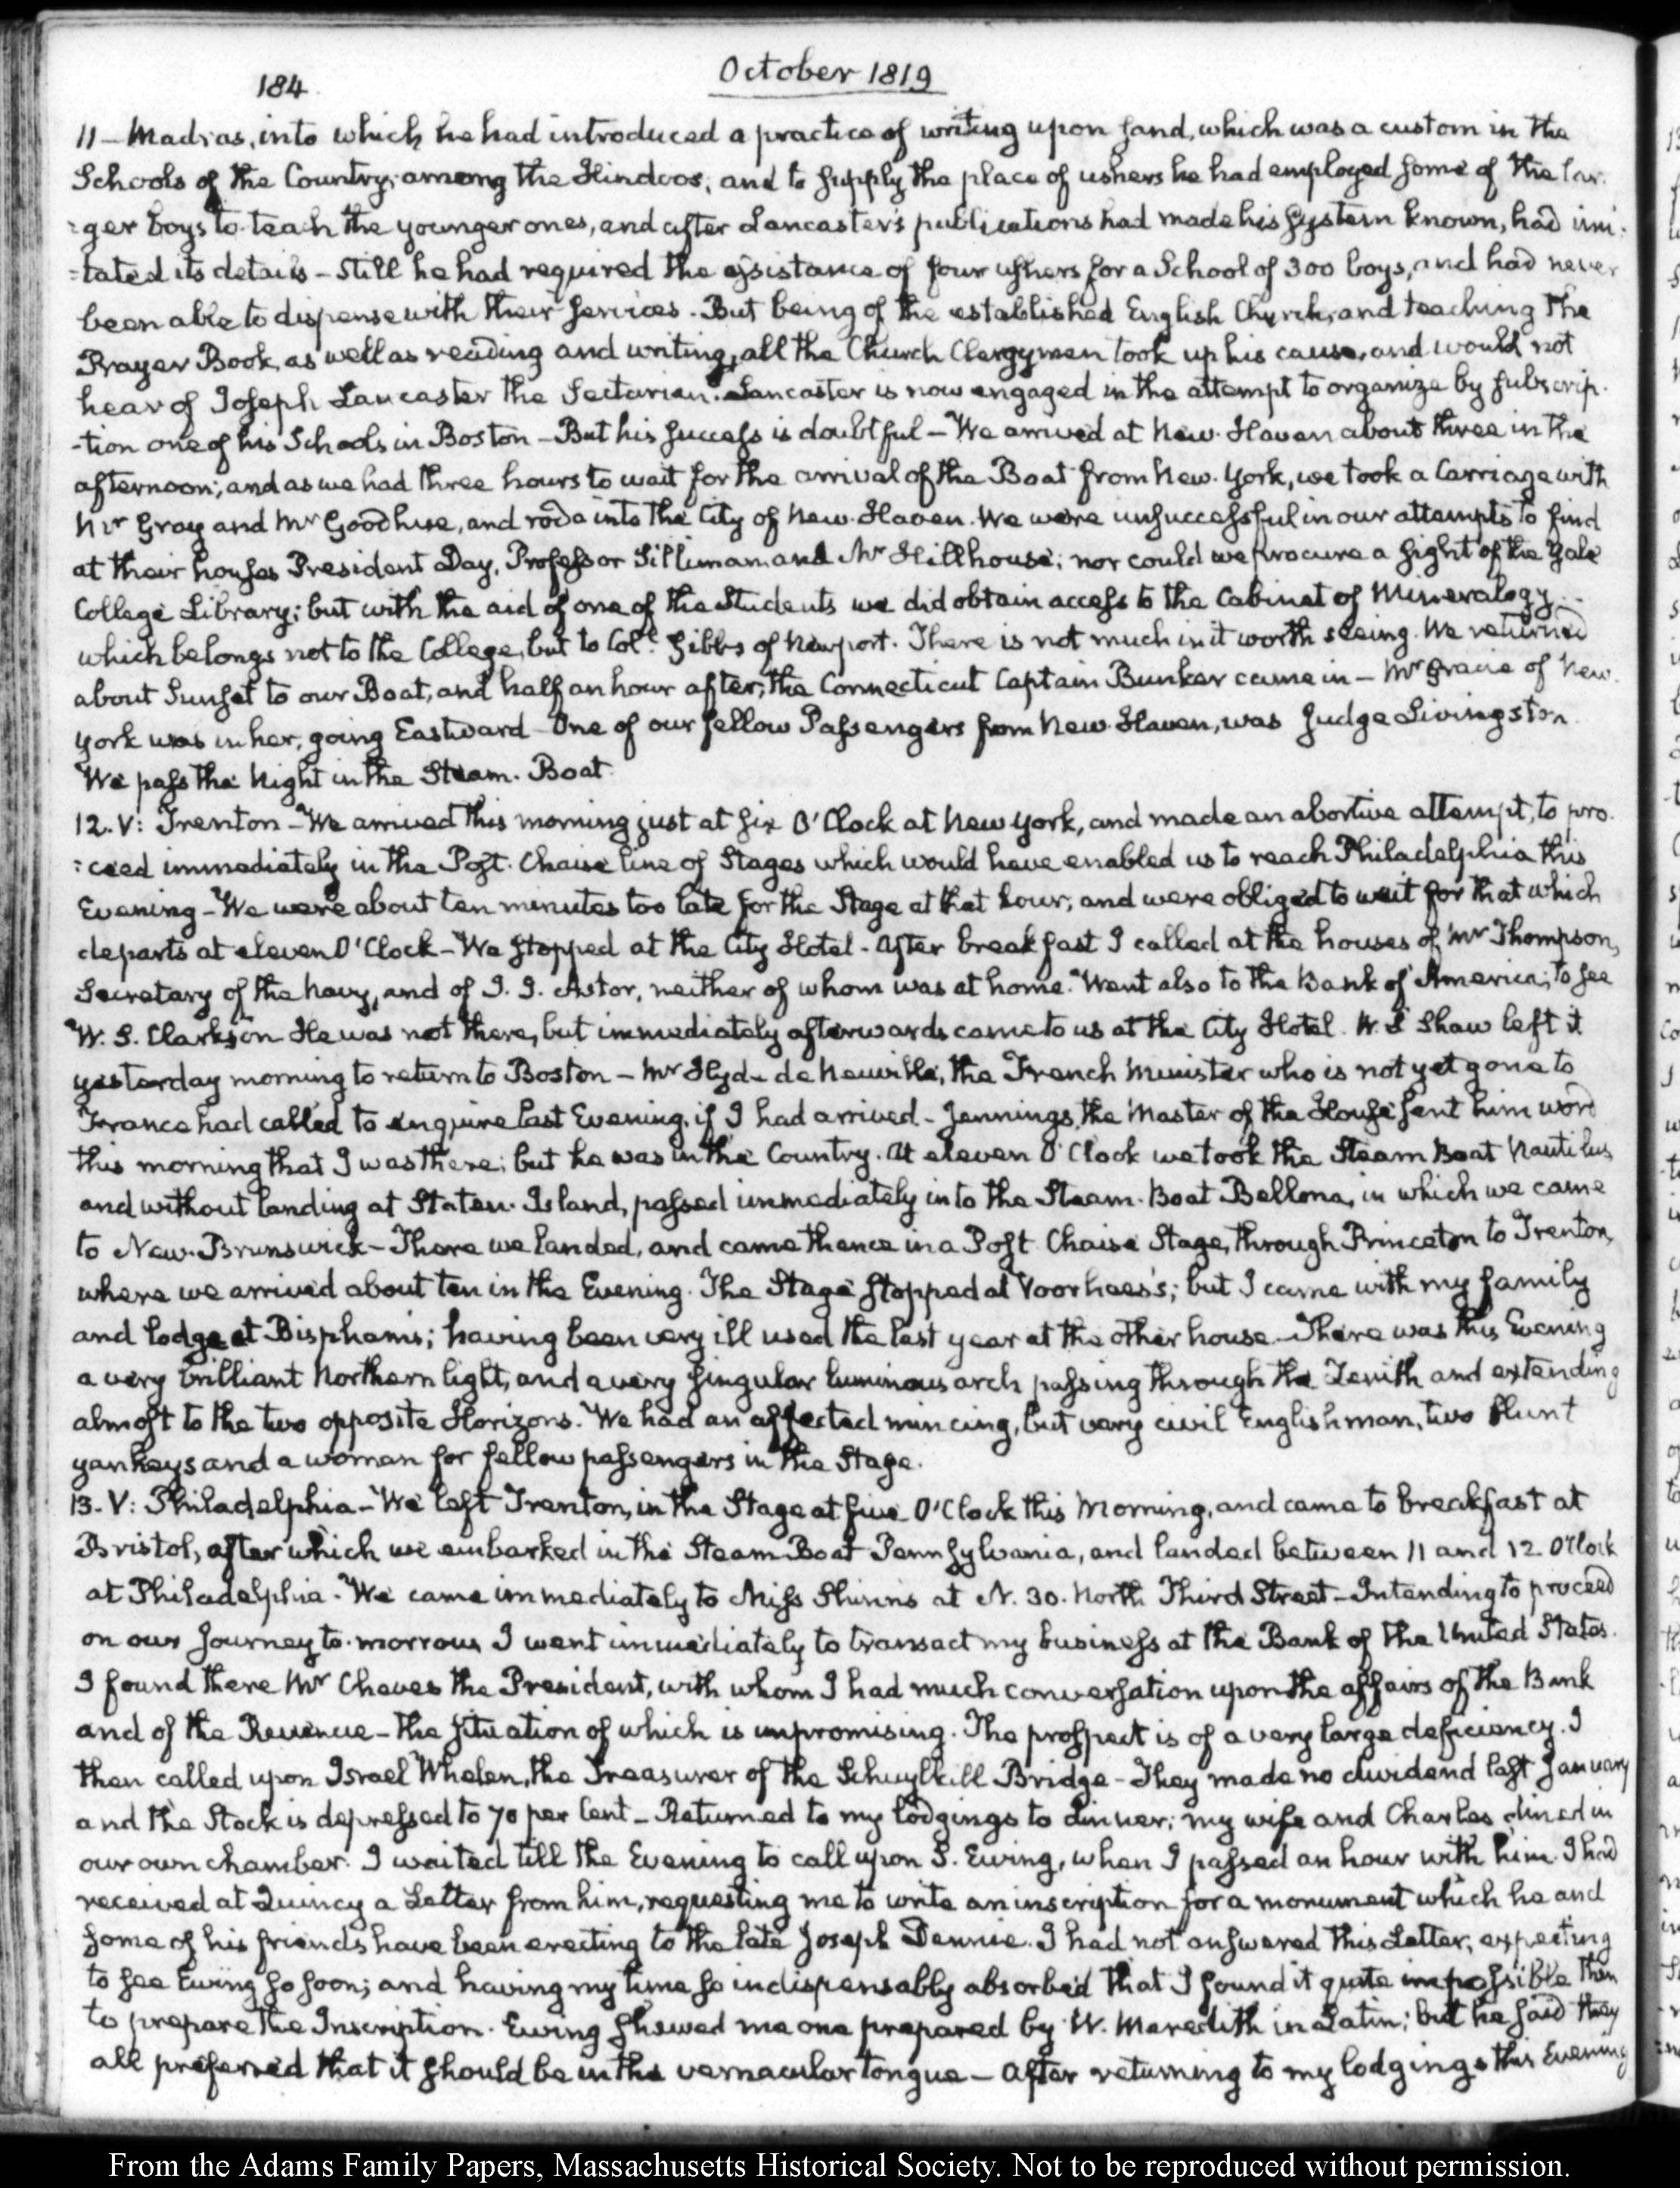 184
October 1819
11 — Madras, into which he had introduced a practice of writing upon sand, which was a custom in the
Schools of the Country, among the Hindoos; and to supply the place of ushers he had employed some of the lar-
-ger boys to teach the younger ones, and after Lancaster's publications had made his system known, had imi-
-tated its details — Still he had required the assistance of four ushers for a School of 300 boys, and had never
been able to dispense with their services. But being of the established English Church, and teaching the
Prayer Book, as well as reading and writing, all the Church Clergymen took up his cause, and would not
hear of Joseph Lancaster the Sectarian. Lancaster is now engaged in the attempt to organize by subscrip-
-tion one of his Schools in Boston — But his success is doubtful — We arrived at New-Haven about three in the
afternoon; and as we had three hours to wait for the arrival of the Boat from New-York, we took a Carriage with
Mr Gray and Mr Goodhue, and rode into the City of New-Haven. We were unsuccessful in our attempts to find
at their houses President Day, Professor Silliman and Mr Hillhouse; nor could we procure a sight of the Yale
College Library; but with the aid of one of the Students we did obtain access to the Cabinet of Mineralogy
which belongs not to the College, but to Coll. Gibbs of Newport. There is not much in it worth seeing. We returned
about Sunset to our Boat, and half an hour after, the Connecticut Captain Bunker came in — Mr Gracie of New-
York was in her, going Eastward — One of our fellow Passengers from New-Haven, was Judge Livingston
We pass the Night in the Steam-Boat.
12. V: Trenton — We arrived this morning just at six O'Clock at New York, and made an abortive attempt, to pro-
-ceed immediately in the Post-Chaise line of Stages which would have enabled us to reach Philadelphia this
Evening — We were about ten minutes too late for the Stage at that hour, and were obliged to wait for that which
departs at eleven O'Clock — We stopped at the City Hotel — After breakfast I called at the houses of Mr Thompson,
Secretary of the Navy, and of J. J. Astor, neither of whom was at home. Went also to the Bank of America, to see
W. S. Clarkson He was not there, but immediately afterwards came to us at the City Hotel. W. S Shaw left it
yesterday morning to return to Boston — Mr Hyde de Neuville, the French Minister who is not yet gone to
France had called to enquire last Evening, if I had arrived — Jennings, the Master of the House sent him word
this morning that I was there; but he was in the Country. At eleven O'Clock we took the Steam Boat Nautilus,
and without landing at Staten-Island, passed immediately into the Steam-Boat Bellona, in which we came
to New-Brunswick — There we landed, and came thence in a Post Chaise Stage, through Princeton to Trenton,
where we arrived about ten in the Evening. The Stage stopped at Voorhees's; but I came with my family
and lodge at Bispham's; having been very ill used the last year at the other house — There was this Evening
a very brilliant Northern light, and a very singular luminous arch passing through the Zenith and extending
almost to the two opposite Horizons. We had an affected mincing, but very civil Englishman, two blunt
yankeys and a woman for fellow passengers in the Stage.
13. V: Philadelphia — We left Trenton, in the Stage at five O'Clock this Morning, and came to breakfast at
Bristol, after which we embarked in the Steam Boat Pennsylvania, and landed between 11 and 12. O'Clock
at Philadelphia. We came immediately to Miss Shinn's at N. 30. North Third Street — Intending to proceed
on our Journey to-morrow I went immediately to transact my business at the Bank of the United States.
I found there Mr Cheves the President, with whom I had much conversation upon the affairs of the Bank
and of the Revenue — the situation of which is unpromising. The prospect is of a very large deficiency. I
then called upon Israel Whelen, the Treasurer of the Schuylkill Bridge — They made no dividend last January
and the Stock is depressed to 70 per Cent — Returned to my lodgings to dinner; my wife and Charles dined in
our own chamber. I waited till the Evening to call upon S. Ewing, when I passed an hour with him. I had
received at Quincy a Letter from him, requesting me to write an inscription for a monument which he and
some of his friends have been erecting to the late Joseph Dennie. I had not answered this Letter, expecting
to see Ewing so soon; and having my time so indispensably absorbed that I found it quite impossible then
to prepare the Inscription. Ewing shewed me one prepared by W. Meredith in Latin; but he said they
all preferred that it should be in the vernacular tongue — After returning to my lodgings this Evening
From the Adams Family Papers, Massachusetts Historical Society. Not to be reproduced without permission.